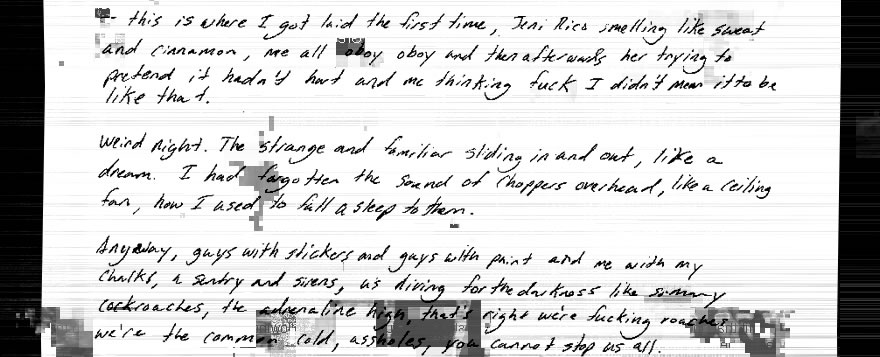 - this is where I got laid the first time, Jeni Rico smelling like sweat
and cinnamon, me all oboy oboy and then afterwards her trying to
pretend it hadn't hurt and me thinking fuck I didn't mean it to be
like that.
Weird night. The strange and familiar sliding in and out, like a
dream. I had forgotten the sound of choppers overhead, like a ceiling
fan, how I used to fall asleep to them.
Anyway, guys with stickers and guys with paint and me with my
chalks, a sentry and sirens, us diving for the darkness like
cockroaches, the adrenaline high, that's right we're fucking roaches
we're the common cold, assholes, you cannot stop us all.